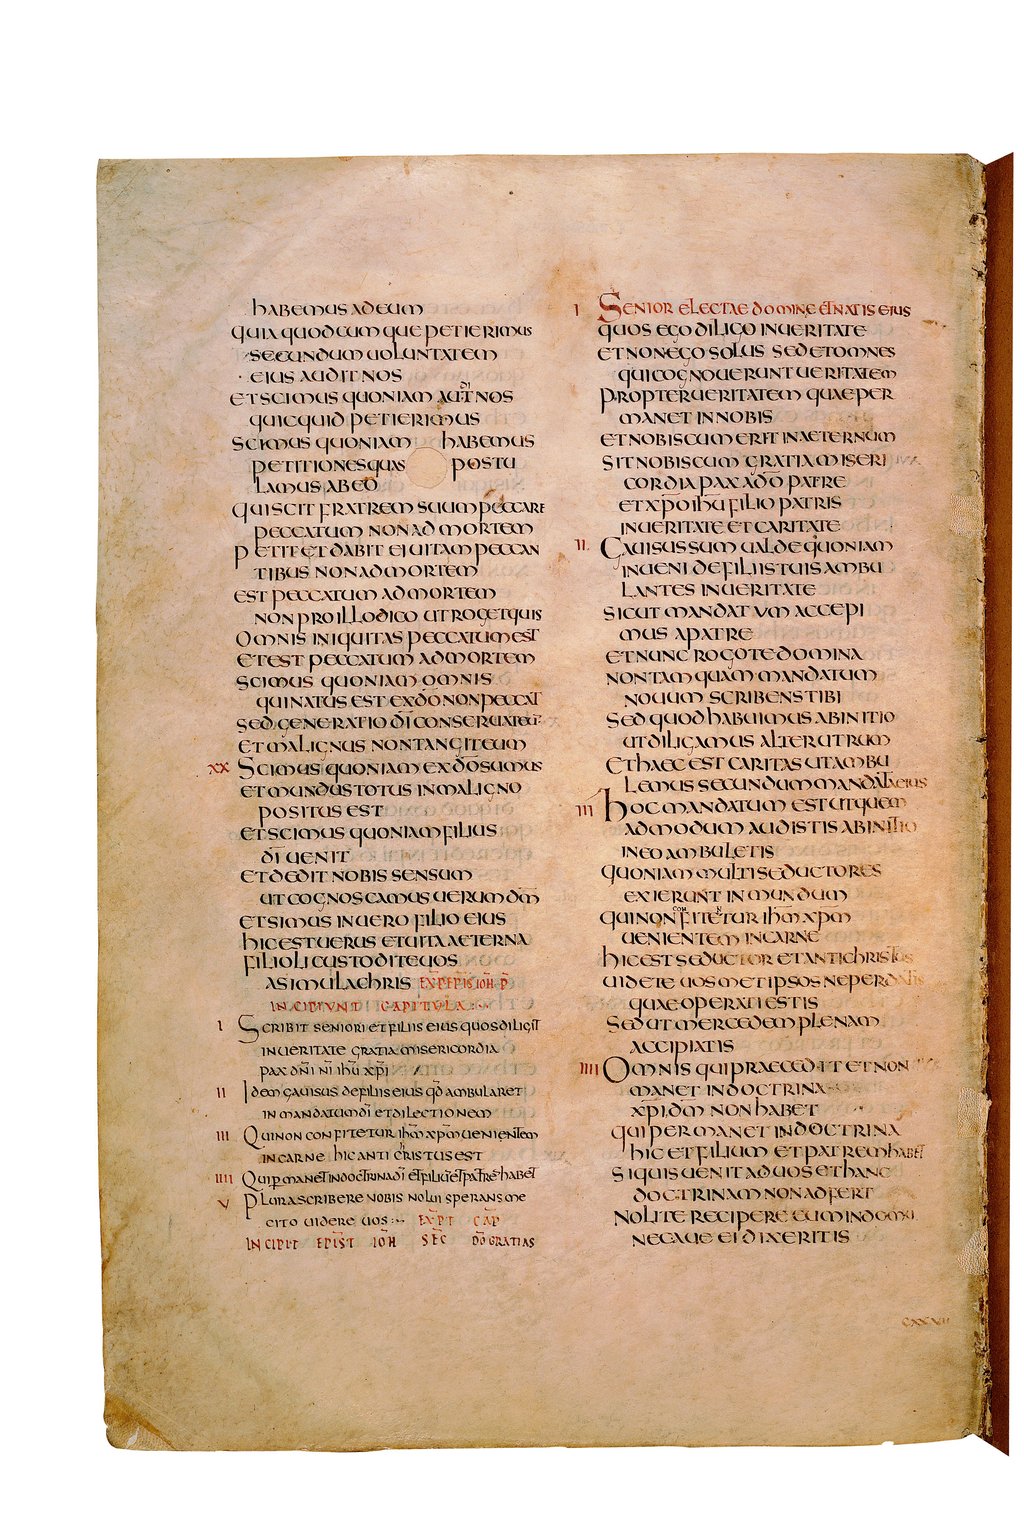 habemus ad eum
quia quodcumque petierimus
secundum uoluntatem
eius audit nos
et scimus quoniam audit nos
quicquid petierimus
scimus quoniam habemus
petitiones quas postu
lamus ab eo
qui scit fratrem suum peccare
peccatum non ad mortem
petit et dabit ei uitam peccan
tibus non ad mortem
est peccatum ad mortem
non pro illo dico ut roget quis
omnis iniquitas peccatum est
et est peccatum ad mortem
scimus quoniam omnis
qui natus est ex dō non peccat
sed generatio dī conseruat eum
et malignus non tangit eum
XX Scimus quoniam ex dō sumus
et mundus totus in maligno
positus est
et scimus quoniam filius
dī uenit
et dedit nobis sensum
ut cognoscamus uerum dm̄
et simus in uero filio eius
hic est uerus et uita aeterna
filioli custodite uos
a simulachris EXP EPIS IOH P
INCIPIUNT CAPITULA
I Scribit seniori et filiis eius quos diligit
in ueritate gratia misericordia
pax dnī nī ihū xpī
II Idem gauisus de filiis eius qd ambularet
in mandatum dī et dilectionem
III Qui non confitetur ihm̄ xpm̄ uenientem
in carne hic anticristus est
IIII Qui permanet in doctrina dī et filiū et patrē habet
V Plura scribere nobis nolui sperans me
cito uidere uos EXPT CAP
INCIPIT EPIST IOH SEC DO GRATIAS
I Senior electae domine et natis eius
quos eco diligo in ueritate
et non ego solus sed et omnes
qui cognouerunt ueritatem
propter ueritatem quae per
manet in nobis
et nobiscum erit in aeternum
sit nobiscum gratia miseri
cordia pax a dō patre
et xpō ihū filio patris
in ueritate et caritate
II Gauisus sum ualde quoniam
inueni de filiis tuis ambu
lantes in ueritate
sicut mandatum accepi
mus a patre
et nunc rogo te domina
non tam quam mandatum
nouum scribens tibi
sed quod habuimus ab initio
ut diligamus alterutrum
et haec est caritas ut ambu
lemus secundum mandata eius
III hoc mandatum est ut quem
admodum audistis ab initio
in eo ambuletis
quoniam multi seductores
exierunt in mundum
qui non confitentur ihm̄ xpm̄
uenientem in carne
hic est seductor et antichristus
uidete uosmetipsos ne perdatis
quae operati estis
sed ut mercedem plenam
accipiatis
IIII Omnis qui praecedit et non
manet in doctrina
xpī dm̄ non habet
qui permanet in doctrina
hic et filium et patrem habet
si quis uenit ad uos et hanc
doctrinam non adfert
nolite recipere eum in domū
nec aue ei dixeritis
CXXVII